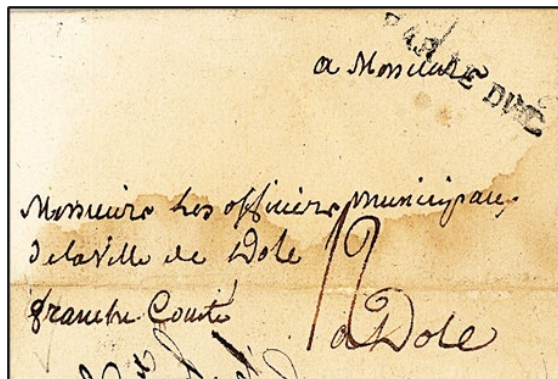 BAR LE DUC
a Monsieur
Messieurs Les officiers municipaux
de la Ville de Dole
franche Comté
12
a Dole